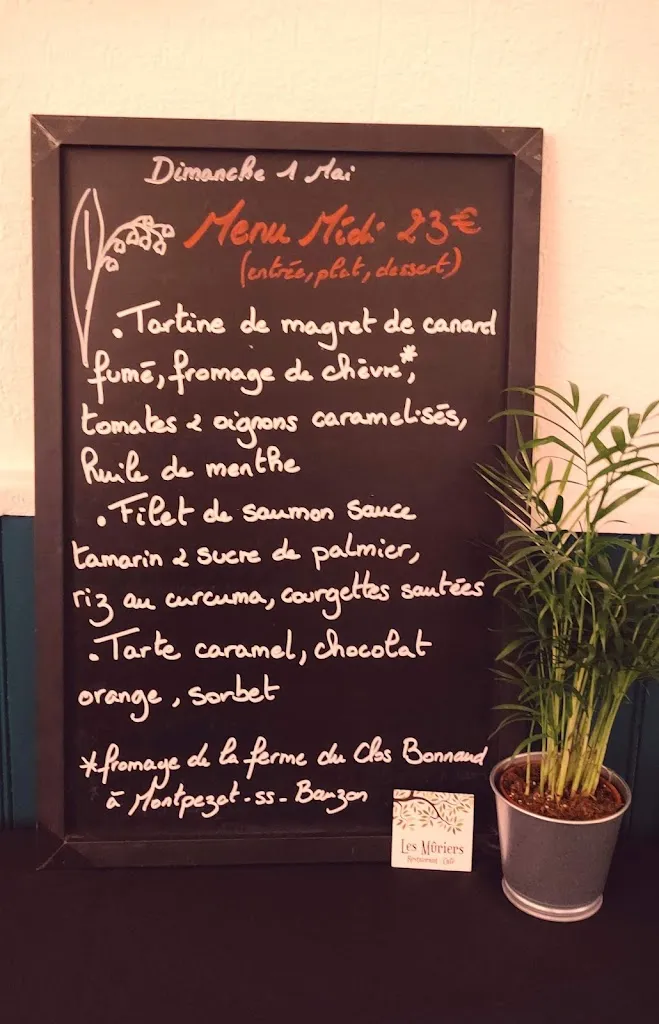 Dimanche 1 Mai
Menu Midi 23€
(entrée, plat, dessert)
• Tartine de magret de canard
fumé, fromage de chèvre*,
tomates & oignons caramelisés,
huile de menthe
• Filet de saumon sauce
tamarin & sucre de palmier,
riz au curcuma, courgettes sautées
• Tarte caramel, chocolat
orange, sorbet
*fromage de la ferme du Clos Bonnaud
à Montpezat-ss-Bauzon
Les Mûriers
Restaurant Café